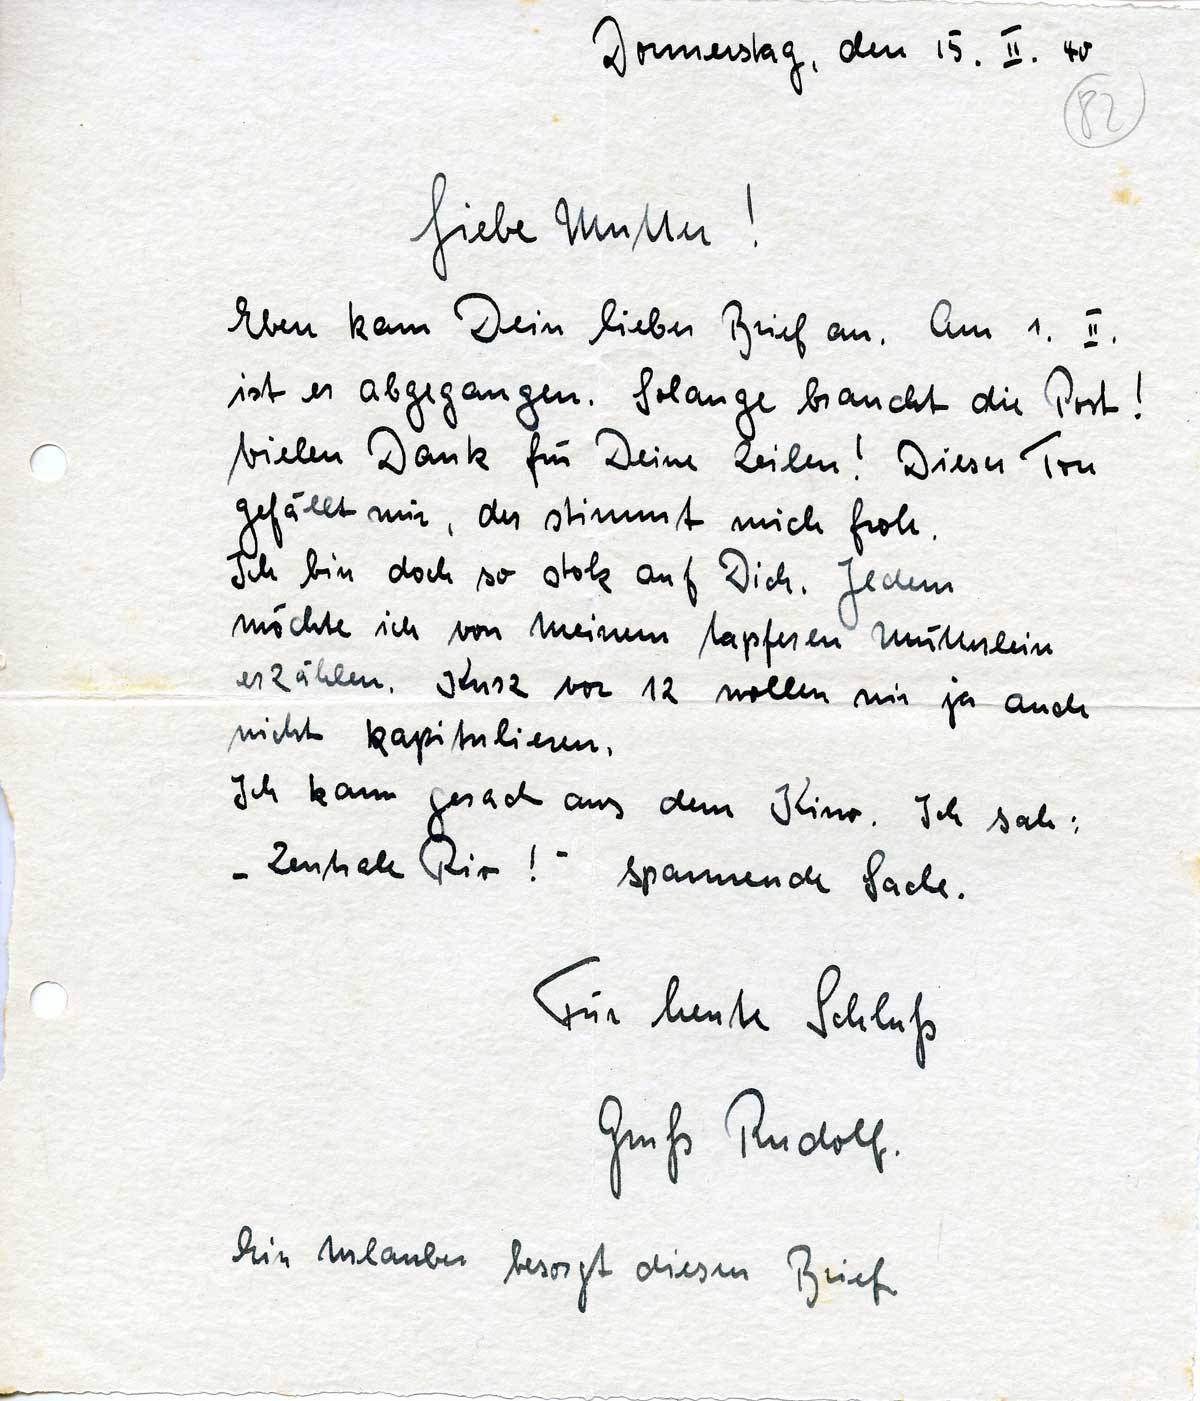 Donnerstag, den 15. II. 40
82
Liebe Mutter!
Eben kam Dein lieber Brief an. Am 1. II.
ist er abgegangen. Solange braucht die Post!
Vielen Dank für Deine Zeilen! Dieser Ton
gefällt mir, der stimmt mich froh.
Ich bin doch so stolz auf Dich. Jedem
möchte ich von meinem tapferen Mütterlein
erzählen. Kurz vor 12 wollen wir ja auch
nicht kapitulieren.
Ich kam gerade aus dem Kino. Ich sah:
"Zentrale Rio!" spannende Sache.
Für heute Schluß
Gruß Rudolf.
Ein Urlauber besorgt diesen Brief